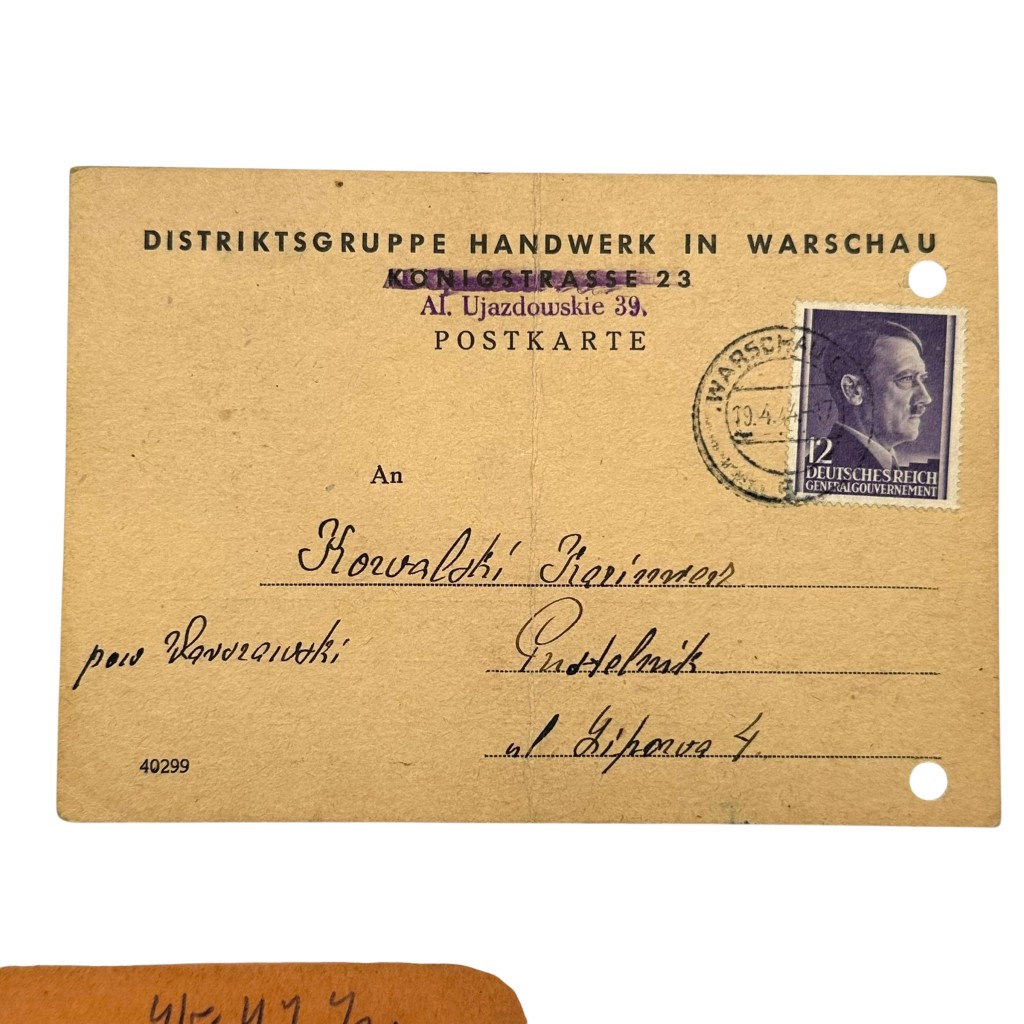 DISTRIKTSGRUPPE HANDWERK IN WARSCHAU
KÖNIGSTRASSE 23
Al. Ujazdowskie 39.
POSTKARTE
WARSCHAU
19.4.44-17
12
DEUTSCHES REICH
GENERALGOUVERNEMENT
An
Kowalski Kazimierz
pow Warszawski
Pustelnik
ul Lipowa 4
40299